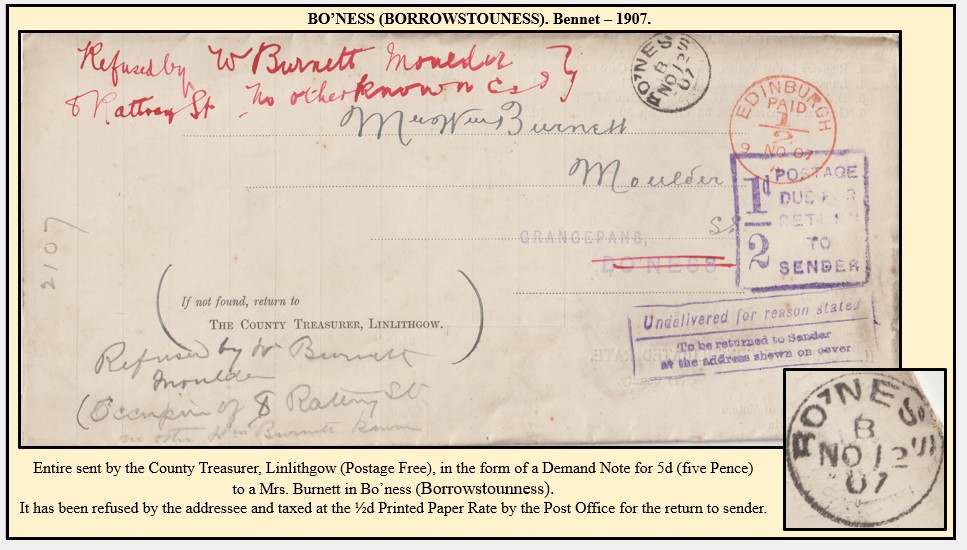 BO’NESS (BORROWSTOUNESS). Bennet – 1907.
Refused by W Burnett Moulder
8 Rattray St - No other known
BO'NESS
B
NO 12
07
EDINBURGH
PAID
1
2
9 NO 07
Mrs Wm Burnett
Moulder
1d
2
POSTAGE
DUE FOR
RETURN
TO
SENDER
GRANGEPANS,
BO'NESS
2107
If not found, return to
THE COUNTY TREASURER, LINLITHGOW.
Undelivered for reason stated
To be returned to Sender
at the address shewn on cover
Refused by W Burnett
Moulder
(Occupier of 8 Rattray St
no other Wm Burnett known
BO'NESS
B
NO 12
07
Entire sent by the County Treasurer, Linlithgow (Postage Free), in the form of a Demand Note for 5d (five Pence)
to a Mrs. Burnett in Bo’ness (Borrowstounness).
It has been refused by the addressee and taxed at the ½d Printed Paper Rate by the Post Office for the return to sender.